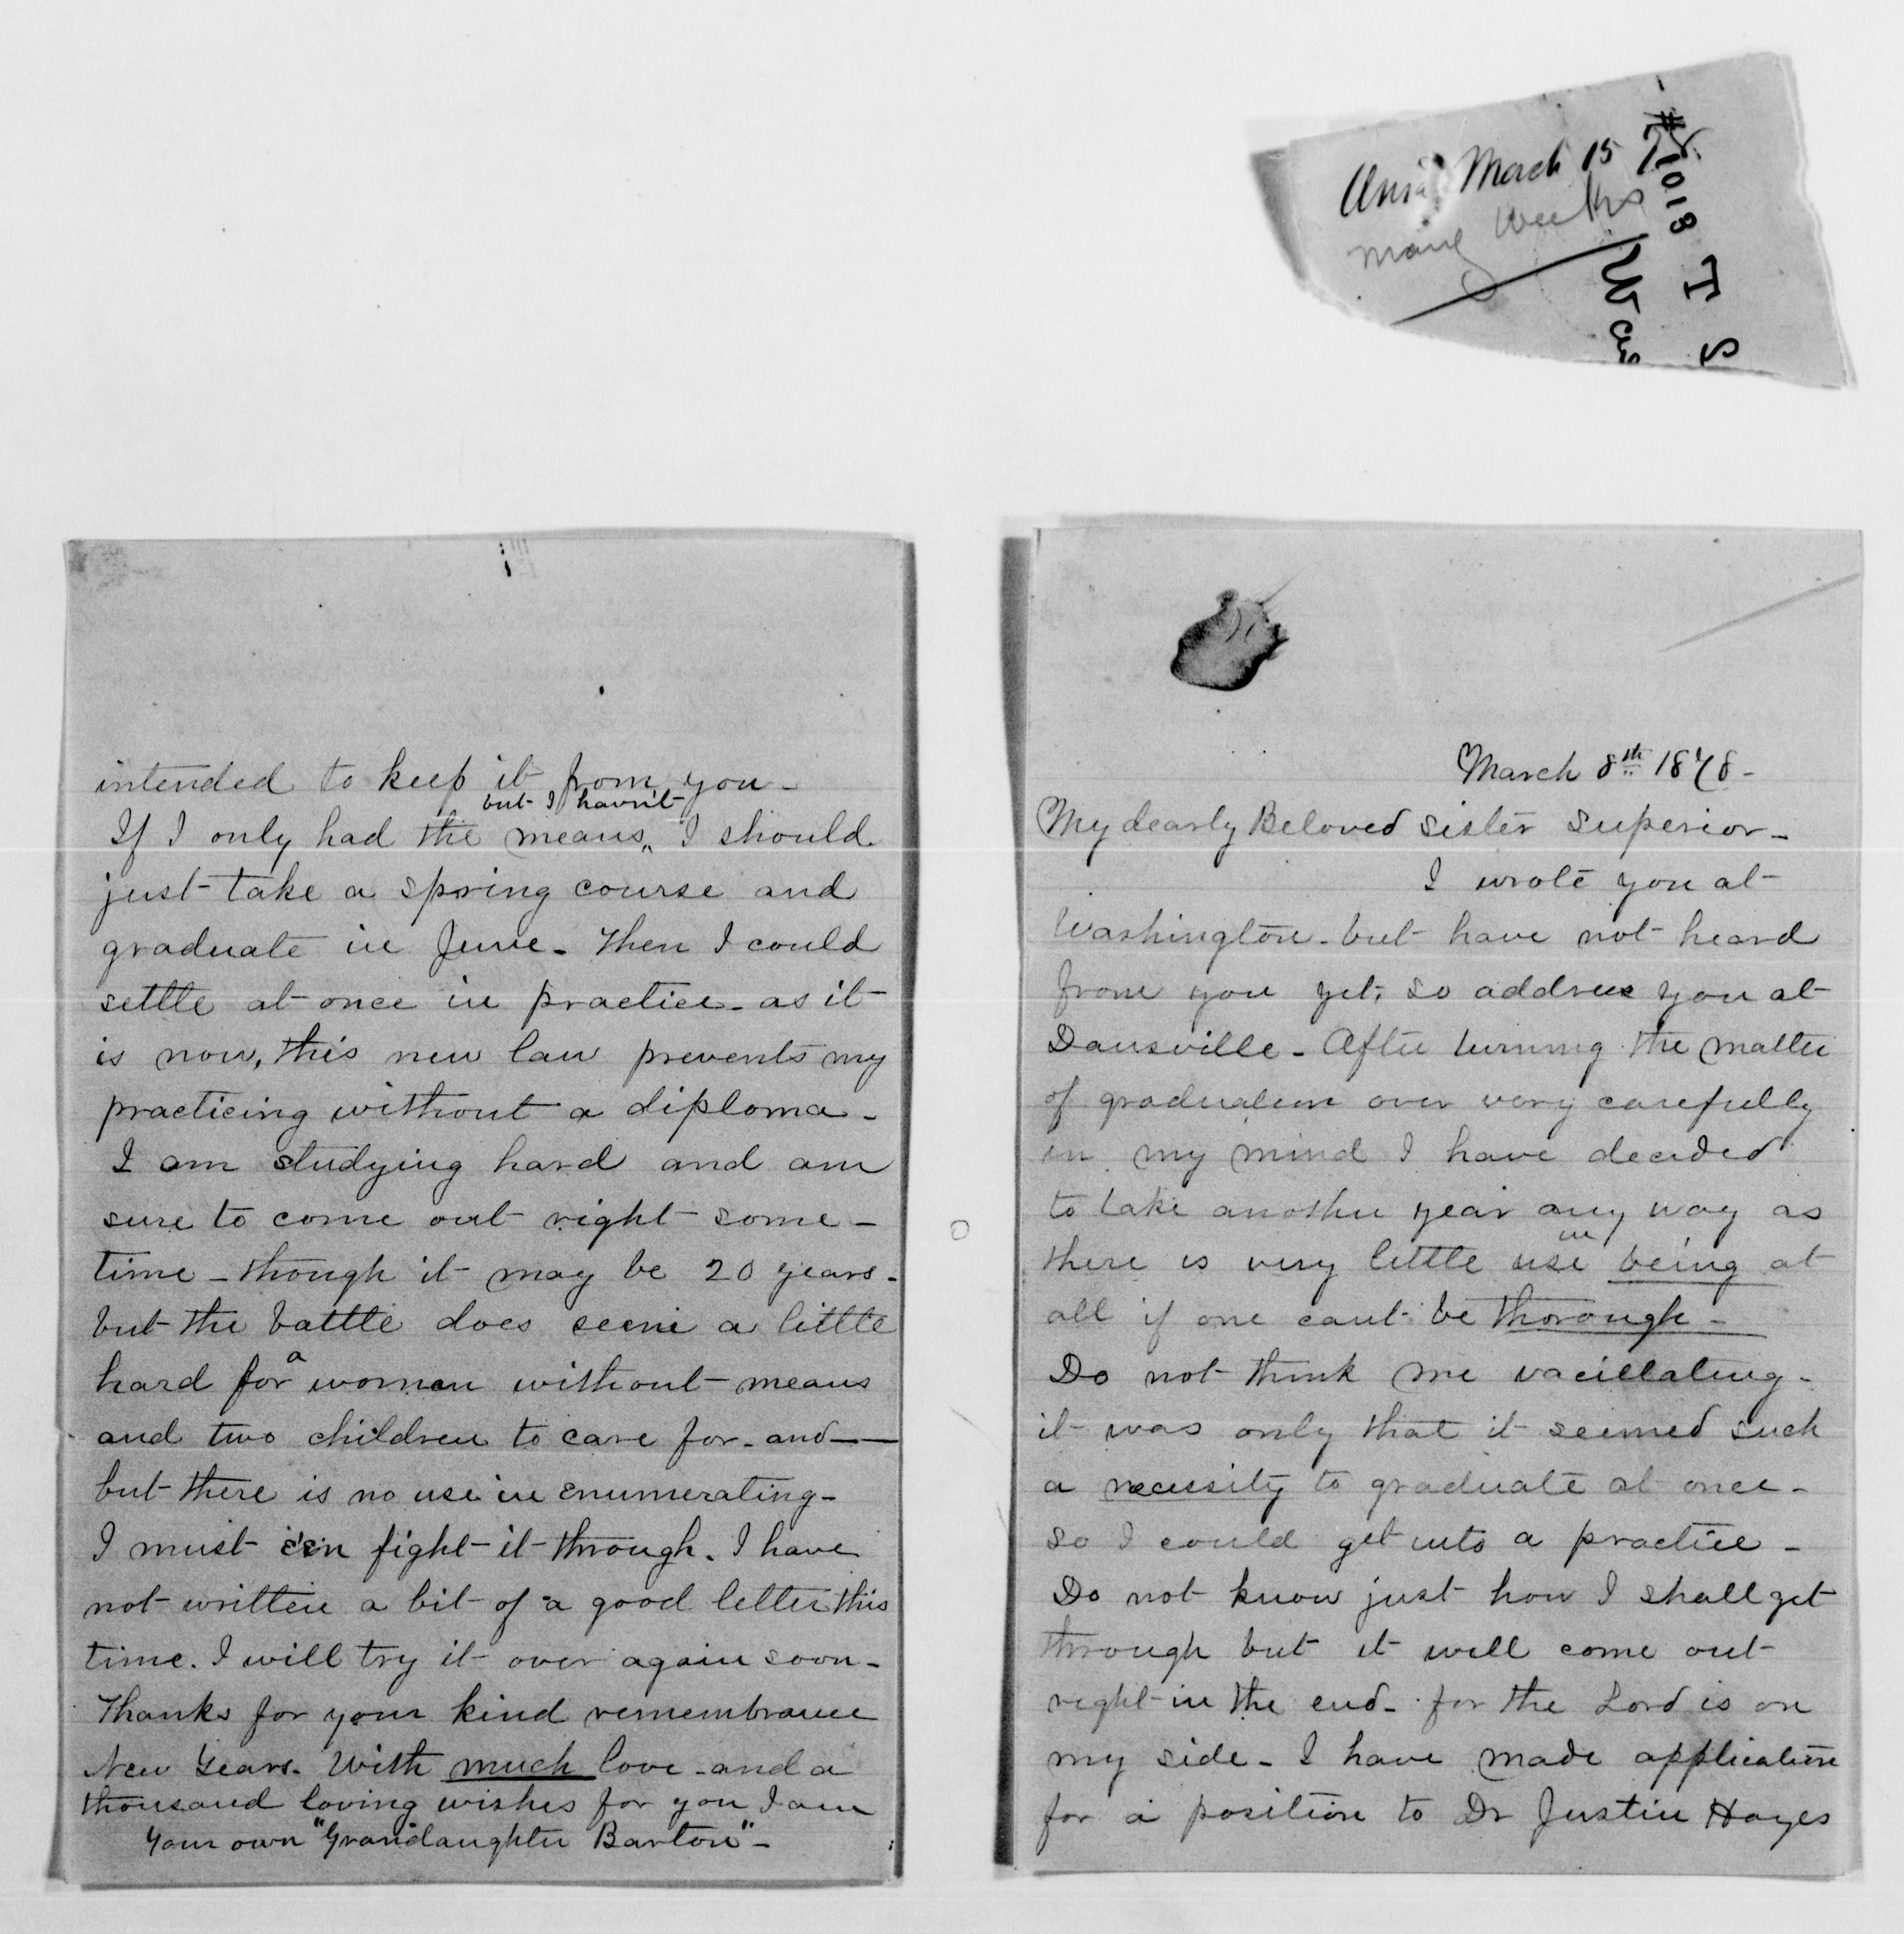 March 15
many weeks
#1018 T S
intended to keep it from you -
but I havn't
If I only had the means,, I should
just take a spring course and
graduate in June - Then I could
settle at once in practice - as it
is now, this new law prevents my
practicing without a diploma -
I am studying hard and am
sure to come out right some -
time - though it may be 20 years -
but the battle does seem a little
hard for a women without means
and two children to care for - and ——
but there is no use in enumerating -
I must e'en fight it through. I have
not written a bit of a good letter this
time. I will try it over again soon -
Thanks for your kind remembrance
New Years. With much love - and a
thousand loving wishes for you I am
Your own "Grandaughter Barton" -
March 8th 1878 -
My dearly Beloved Sister Superior -
I wrote you at
Washington - but have not heard
from you yet; so address you at
Dansville - After turning the matter
of graduation over very carefully
in my mind I have decided
to take another year any way as
there is very little use in being at
all if one cant be thorough -
Do not think me vacillating -
it was only that it seemed such
a necessity to graduate at once -
so I could get into a practice -
Do not know just how I shall get
through but it will come out
right in the end - for the Lord is on
my side - I have made application
for a position to Dr Justin Hayes